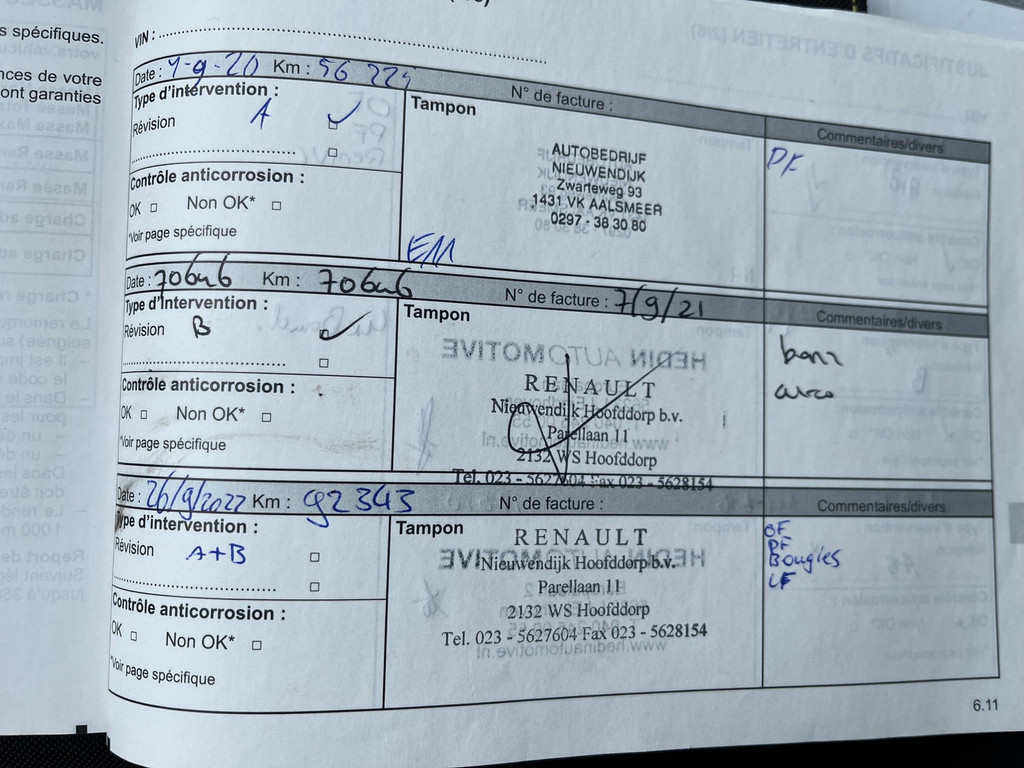 s spécifiques.
nces de votre
ont garanties
VIN :
Date : 9-9-20 Km : 56 229 N° de facture :
Type d'intervention :
Révision A
Contrôle anticorrosion :
OK Non OK*
*Voir page spécifique
Tampon
AUTOBEDRIJF
NIEUWENDIJK
Zwarteweg 93
1431 VK AALSMEER
0297 - 38 30 80
EM
Commentaires/divers
PF
Date : 70646 Km : 70646 N° de facture : 7/9/21
Type d'intervention :
Révision B
Contrôle anticorrosion :
OK Non OK*
*Voir page spécifique
Tampon
HEDIN AUTOMOTIVE
RENAULT
Nieuwendijk Hoofddorp b.v.
Parellaan 11
2132 WS Hoofddorp
Tel. 023 - 5627604 Fax 023 - 5628154
Commentaires/divers
Date : 26/9/2022 Km : 92343 N° de facture :
Type d'intervention :
Révision A+B
Contrôle anticorrosion :
OK Non OK*
*Voir page spécifique
Tampon
RENAULT
HEDIN AUTOMOTIVE
Nieuwendijk Hoofddorp b.v.
Parellaan 11
2132 WS Hoofddorp
Tel. 023 - 5627604 Fax 023 - 5628154
www.hedinautomotive.nl
Commentaires/divers
OF
PF
Bougies
LF
6.11